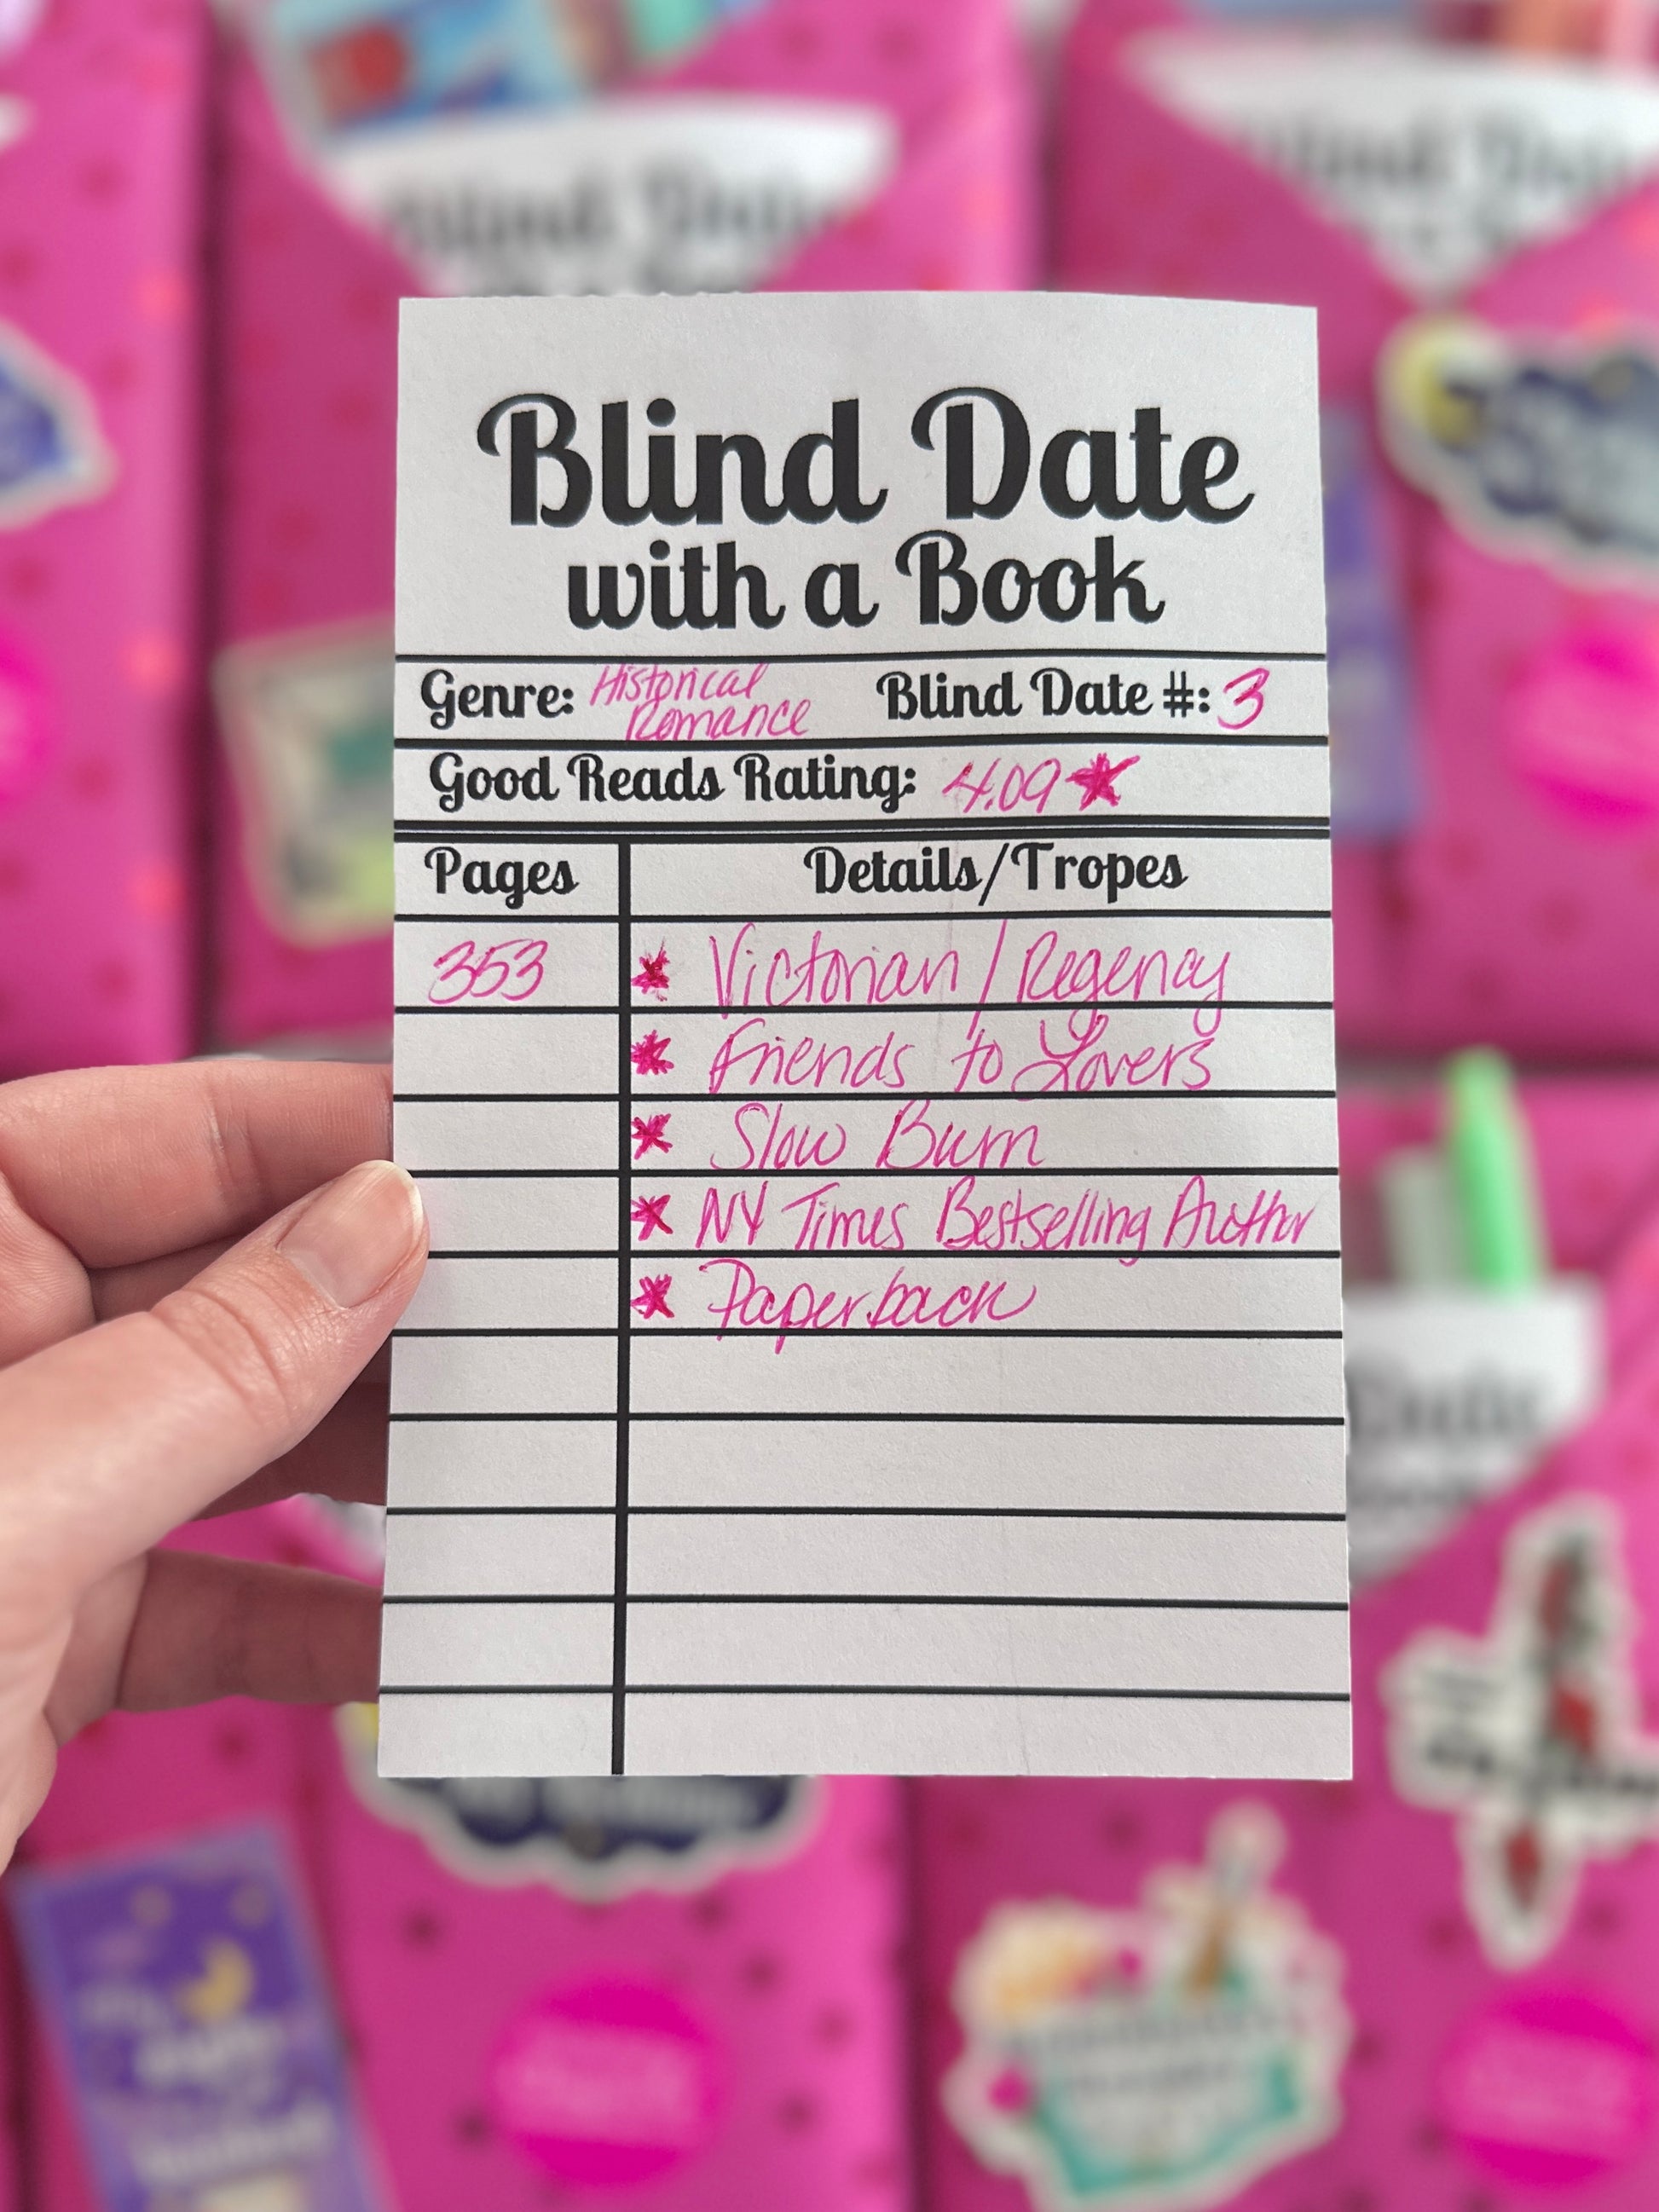 Blind Date
with a Book
Genre: Historical Romance Blind Date #: 3
Good Reads Rating: 4.09 ★
Pages Details/Tropes
353 ★ Victorian / Regency
★ Friends to Lovers
★ Slow Burn
★ NY Times Bestselling Author
★ Paperback
Blind Date
Blind Date